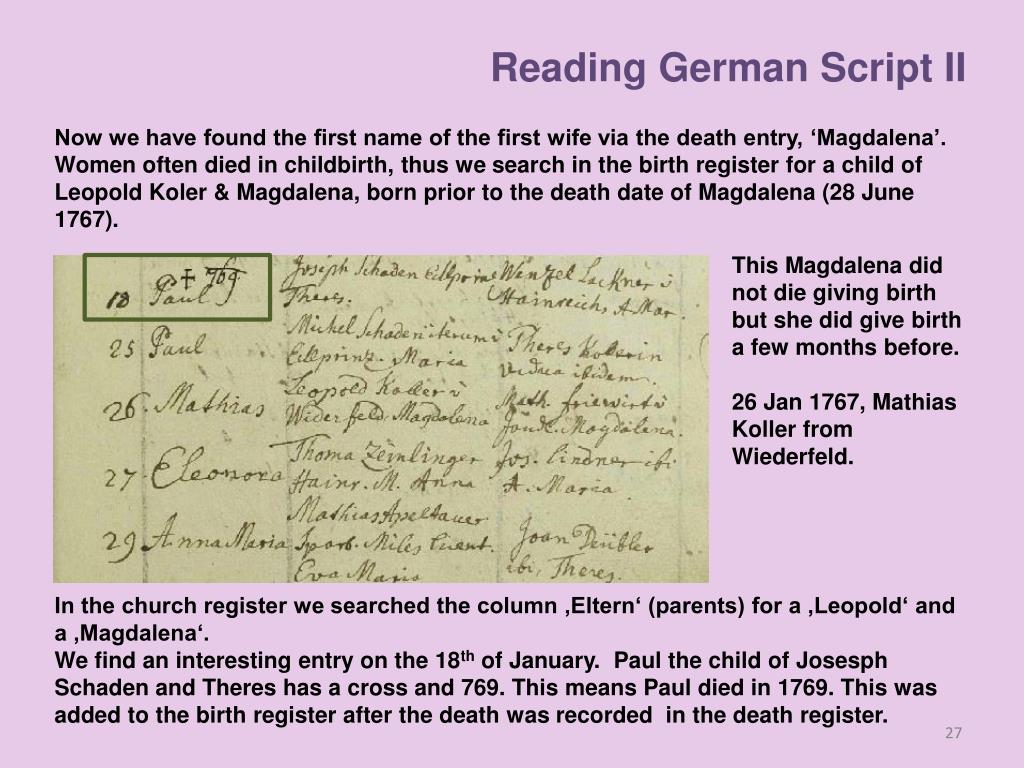 Reading German Script II
Now we have found the first name of the first wife via the death entry, ‘Magdalena’.
Women often died in childbirth, thus we search in the birth register for a child of
Leopold Koler & Magdalena, born prior to the death date of Magdalena (28 June
1767).
18 Paul † 769
Joseph Schaden
Theres.
Wenzel Lackner
Hainreich, A Mar.
25 Paul
Michel Schaden
Eillprinz. Maria
Theres Kollerin
vidua ibidem.
26. Mathias
Leopold Koller
Wider feld. Magdalena
Math.
Magdalena.
27 Eleonora
Thoma Zeinlinger
Hainr. M. Anna
Jos. Lindner ibi
A. Maria
29 Anna Maria
Mathias Apeltauer
Miles
Eva Maria
Joan Deübler
ibi, Theres.
This Magdalena did
not die giving birth
but she did give birth
a few months before.
26 Jan 1767, Mathias
Koller from
Wiederfeld.
In the church register we searched the column ‚Eltern‘ (parents) for a ‚Leopold‘ and
a ‚Magdalena‘.
We find an interesting entry on the 18th of January.  Paul the child of Josesph
Schaden and Theres has a cross and 769. This means Paul died in 1769. This was
added to the birth register after the death was recorded  in the death register.
27